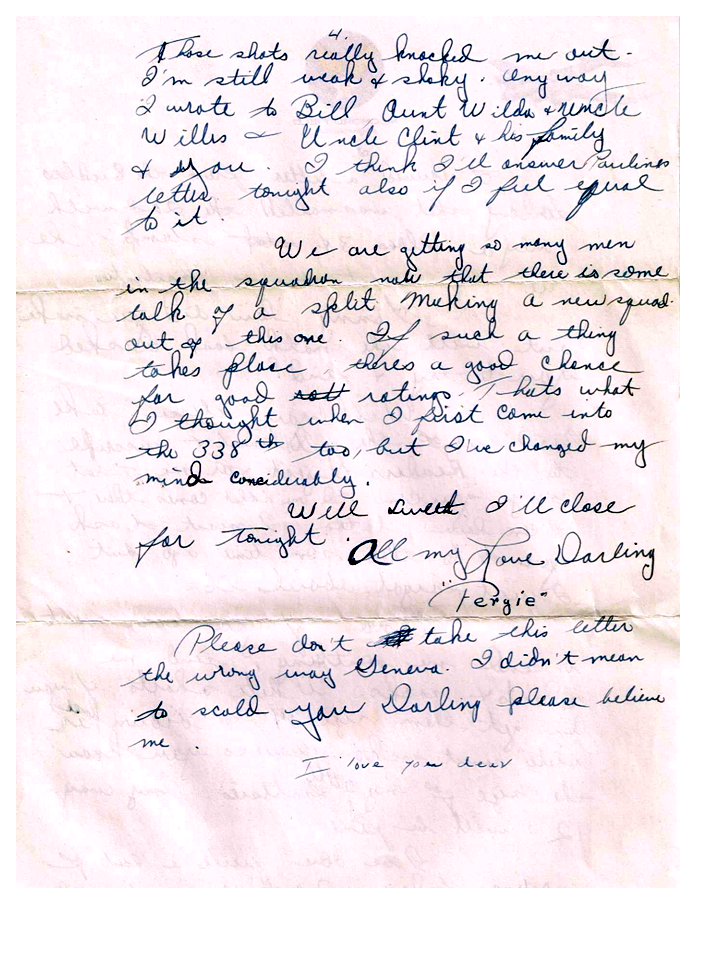 4.
Those shots really knocked me out.
I'm still weak & shaky. Any way
I wrote to Bill, Aunt Wilda & Uncle
Willis & Uncle Clint & his family
& you. I think I'll answer Paulines
letter tonight also if I feel equal
to it.
We are getting so many men
in the squadron now that there is some
talk of a split making a new squad.
out of this one. If such a thing
takes place theres a good chance
for good ratings. Thats what
I thought when I first come into
the 338th too, but I've changed my
mind conciderably.
Well sweet I'll close
for tonight.
All my Love Darling
"Fergie"
Please don't take this letter
the wrong way Geneva. I didn't mean
to scold you Darling please believe
me.
I love you dear